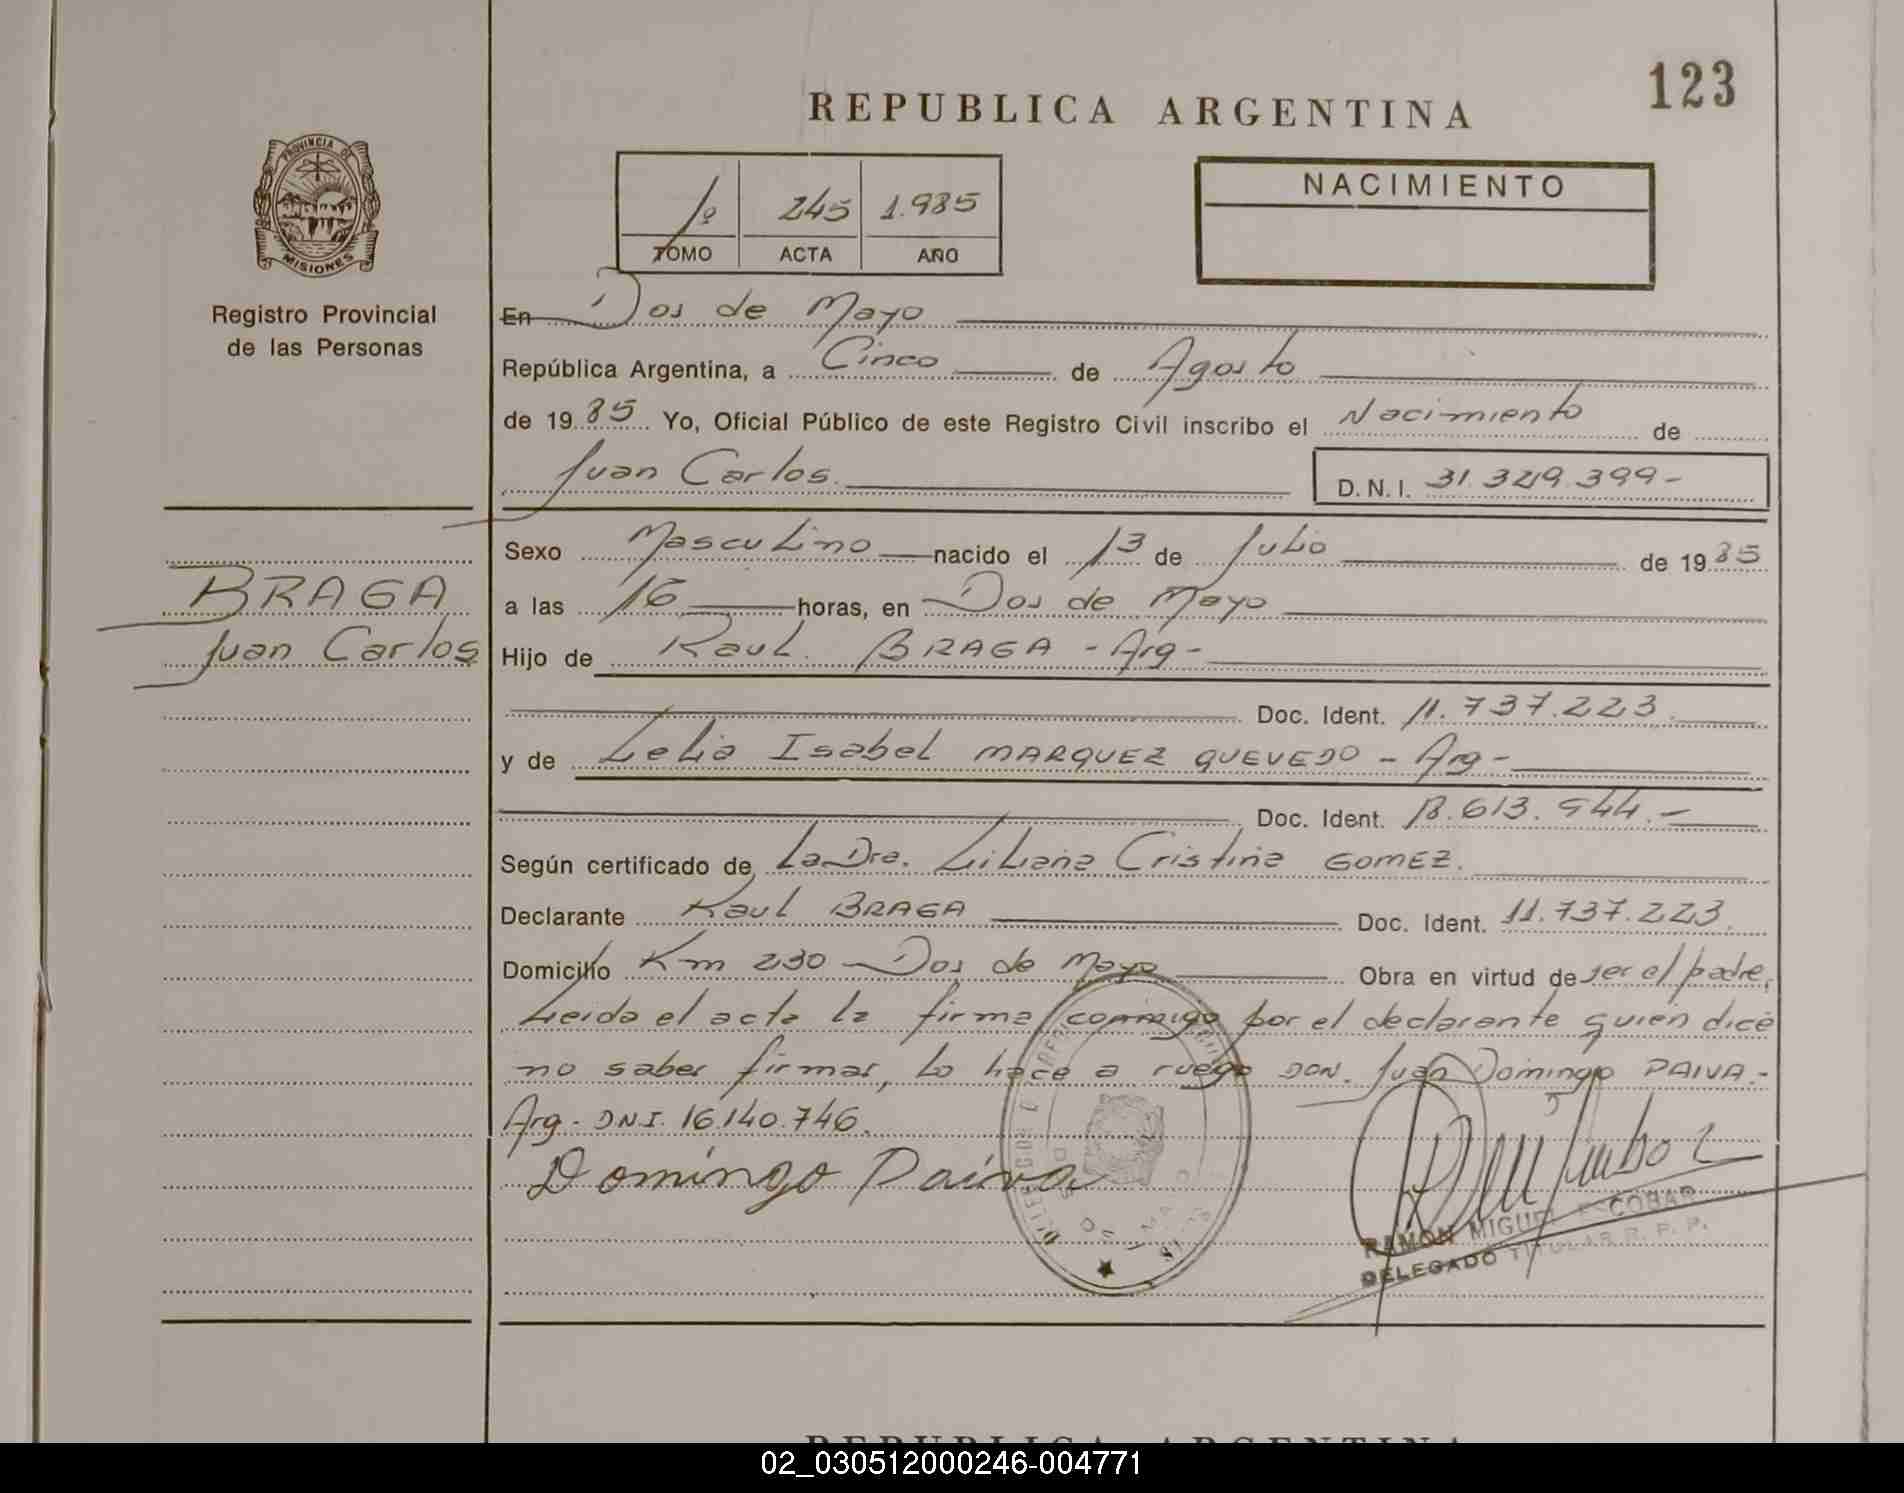 123
REPUBLICA ARGENTINA
PROVINCIA DE
MISIONES
Registro Provincial
de las Personas
1º 245 1.985
TOMO ACTA AÑO
NACIMIENTO
En Dos de Mayo
República Argentina, a Cinco de Agosto
de 1985 Yo, Oficial Público de este Registro Civil inscribo el Nacimiento de
Juan Carlos.
D. N. I. 31.349.399-
Sexo Masculino nacido el 13 de Julio de 1985
BRAGA
Juan Carlos
a las 16 horas, en Dos de Mayo
Hijo de Raul. BRAGA - Arg -
Doc. Ident. 11.737.223.
y de Lelia Isabel MARQUEZ QUEVEDO - Arg -
Doc. Ident. 613.944.-
Según certificado de La Dra. Liliana Cristina GOMEZ.
Declarante Raul BRAGA Doc. Ident. 11.737.223.
Domicilio Km 230 - Dos de Mayo Obra en virtud de ser el padre,
Leida el acta la firma conmigo por el declarante quien dice
no saber firmar, lo hace a ruego DON. Juan Domingo PAIVA.-
Arg - DNI. 16.140.746.
Domingo Paiva
RAMON MIGUEL ESCOBAR
DELEGADO TITULAR R. P. P.
REPUBLICA ARGENTINA
02_030512000246-004771